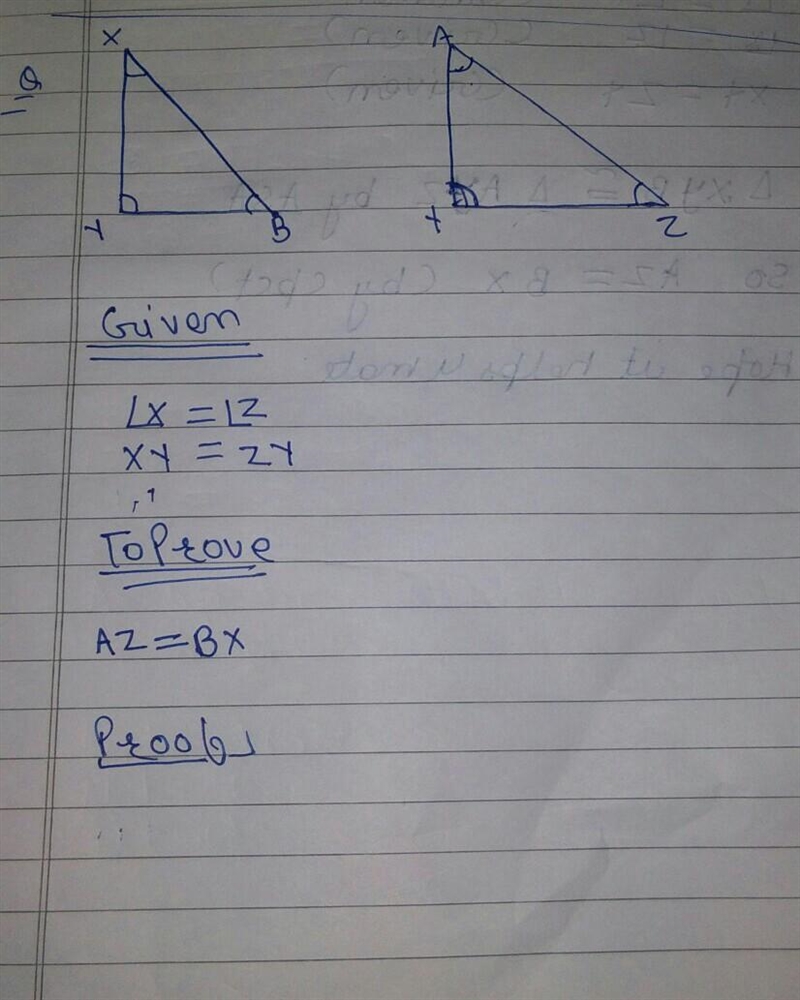 Q
X A
Y B Y Z
Given
∠X = ∠Z
XY = ZY
To Prove
AZ = BX
Proof